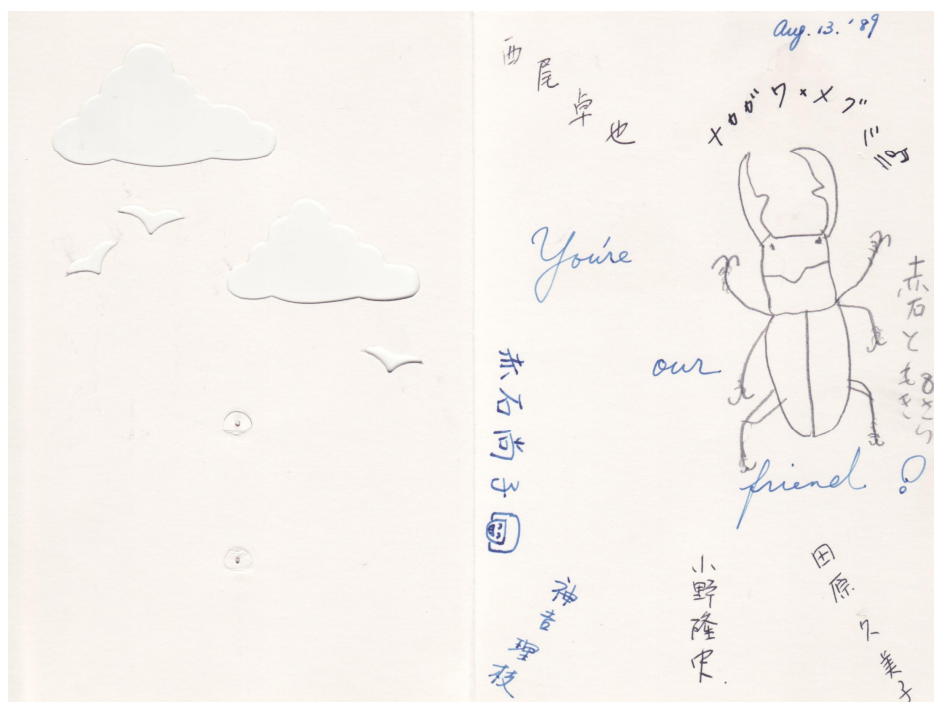 Aug. 13. '89
西尾卓也
You're
our
friend!
赤石尚子
赤石ともき
8さい
神吉理枝
小野隆史
田原久美子